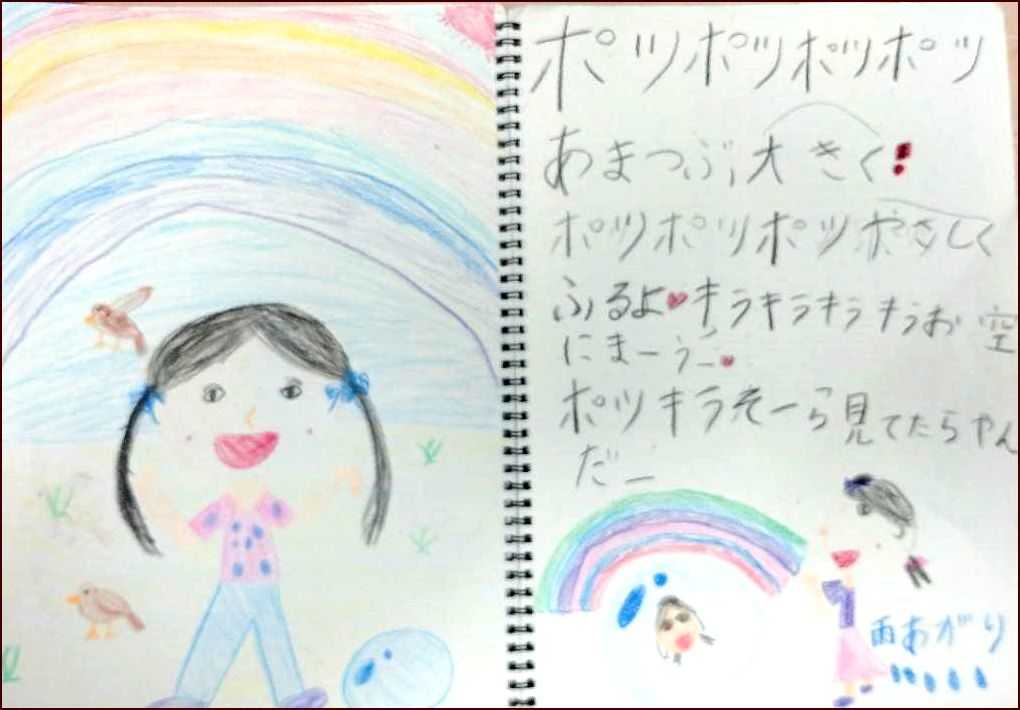 ポツポツポツポツ
あまつぶ大きく!
ポツポツポツやさしく
ふるよ♥キラキラキラキラお空
にまーう♥
ポツキラそーら見てたらやん
だー
雨あがり